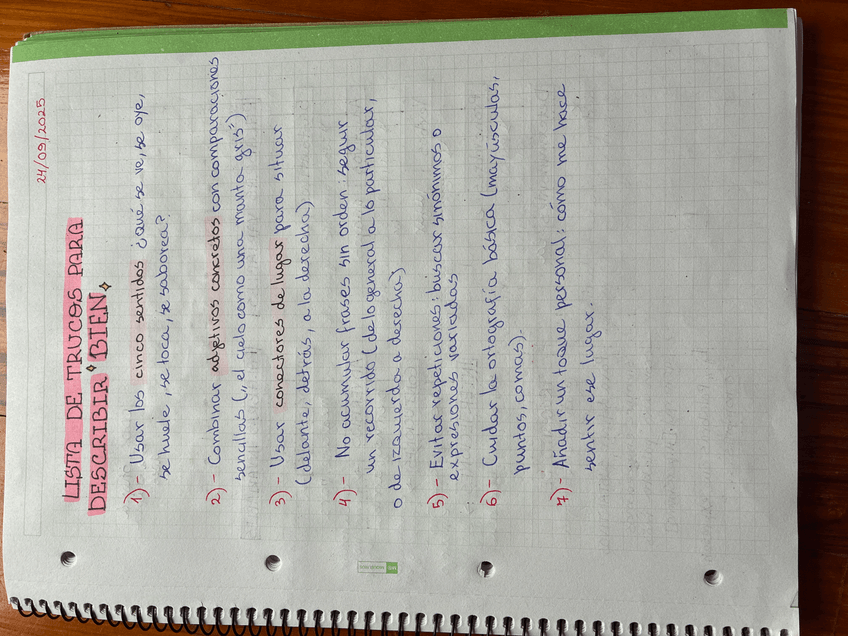 24/09/2025
LISTA DE TRUCOS PARA
DESCRIBIR BIEN
1)- Usar los cinco sentidos ¿qué se ve, se oye,
se huele, se toca, se saborea?
2)- Combinar adjetivos concretos con comparaciones
sencillas („el cielo como una manta gris”)
3)- Usar conectores de lugar para situar
(delante, detrás, a la derecha)
4)- No acumular frases sin orden: seguir
un recorrido (de lo general a lo particular,
o de izquierda a derecha)
5)- Evitar repeticiones: buscar sinónimos o
expresiones variadas
6)- Cuidar la ortografía básica (mayúsculas,
puntos, comas).
7)- Añadir un toque personal: cómo me hace
sentir ese lugar.